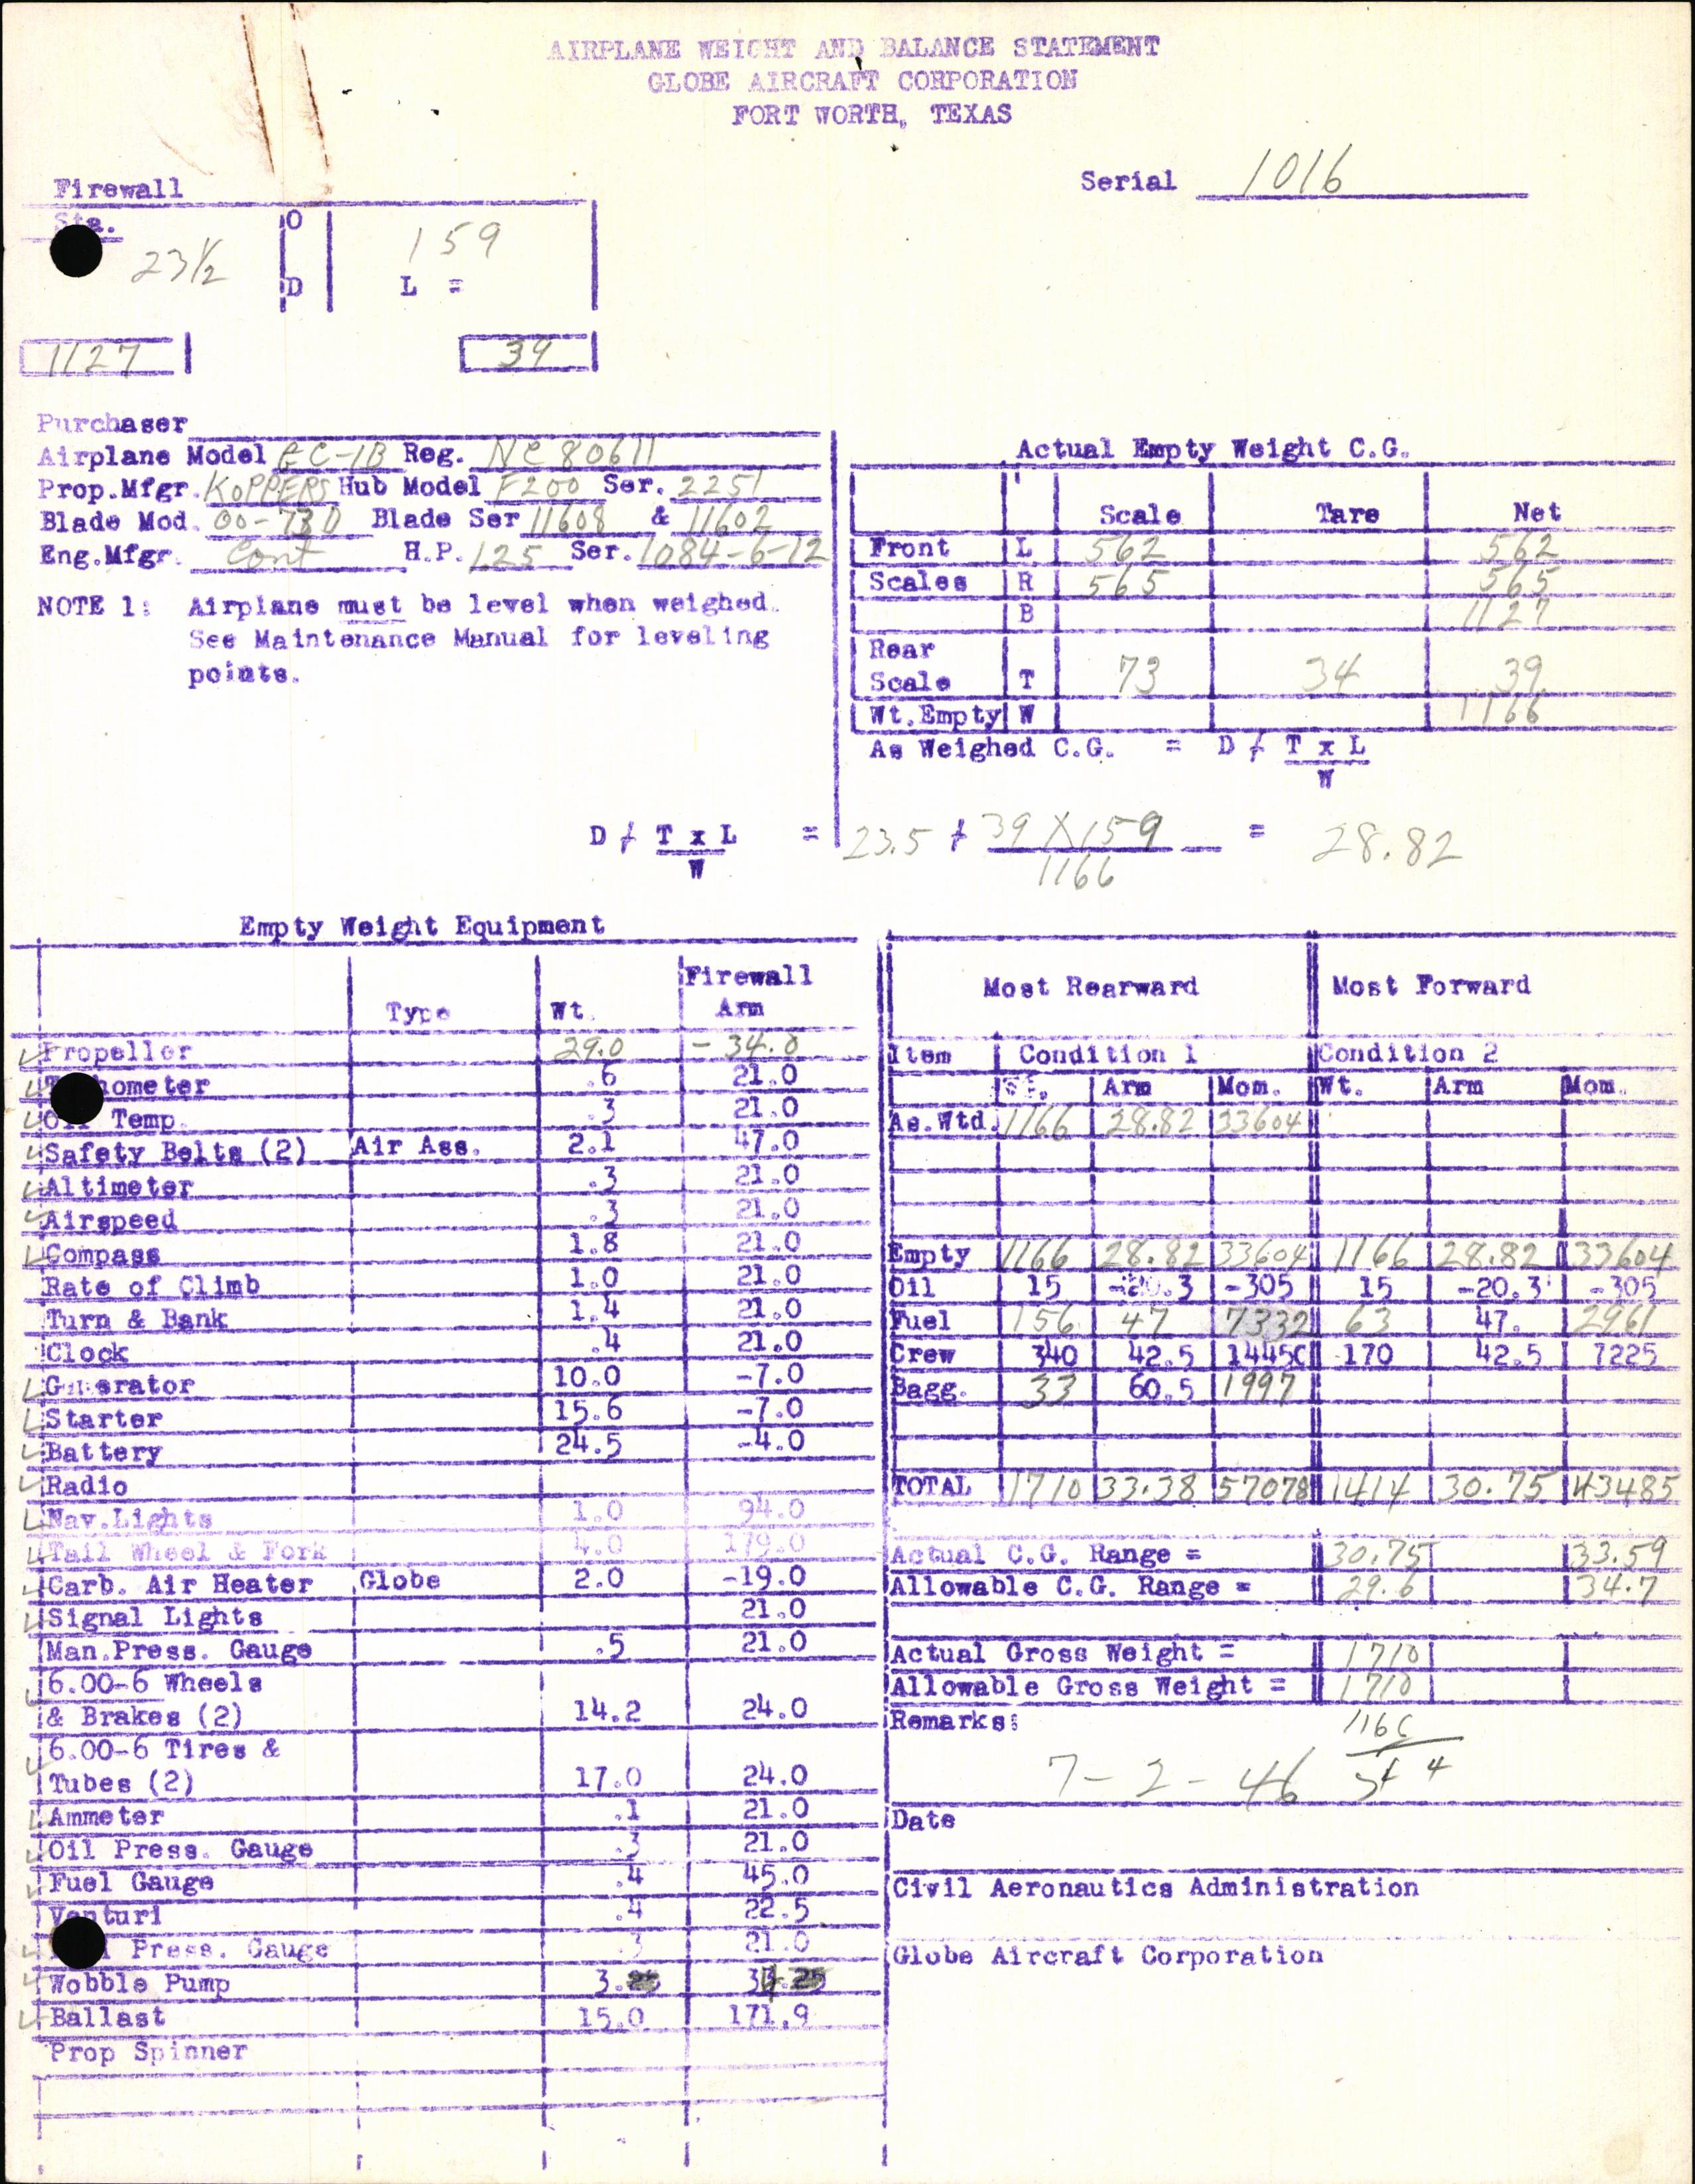 AIRPLANE WEIGHT AND BALANCE STATEMENT
GLOBE AIRCRAFT CORPORATION
FORT WORTH, TEXAS
Serial 1016
Firewall
Sta.
23½ O 159
D L =
1127 39
Purchaser
Airplane Model GC-1B Reg. NC 80611
Prop.Mfgr. KOPPERS Hub Model F200 Ser. 2251
Blade Mod. 00-73D Blade Ser 11608 & 11602
Eng.Mfgr. Cont H.P. 125 Ser. 1084-6-12
NOTE 1: Airplane must be level when weighed.
See Maintenance Manual for leveling
points.
Actual Empty Weight C.G.
Scale Tare Net
Front L 562 562
Scales R 565 565
B 1127
Rear
Scale T 73 34 39
Wt.Empty W 1166
As Weighed C.G. = D + T x L
W
D + T x L = 23.5 + 39 X 159 = 28.82
W 1166
Empty Weight Equipment
Type Wt. Firewall
Arm
Propeller 29.0 -34.0
Tachometer .6 21.0
Oil Temp. .3 21.0
Safety Belts (2) Air Ass. 2.1 47.0
Altimeter .3 21.0
Airspeed .3 21.0
Compass 1.8 21.0
Rate of Climb 1.0 21.0
Turn & Bank 1.4 21.0
Clock .4 21.0
Generator 10.0 -7.0
Starter 15.6 -7.0
Battery 24.5 -4.0
Radio
Nav.Lights 1.0 94.0
Tail Wheel & Fork 4.0 179.0
Carb. Air Heater Globe 2.0 -19.0
Signal Lights 21.0
Man.Press. Gauge .5 21.0
6.00-6 Wheels
& Brakes (2) 14.2 24.0
6.00-6 Tires &
Tubes (2) 17.0 24.0
Ammeter .1 21.0
Oil Press. Gauge .3 21.0
Fuel Gauge .4 45.0
Venturi .4 22.5
Press. Gauge .3 21.0
Wobble Pump 3.25
Ballast 15.0 171.9
Prop Spinner
Most Rearward Most Forward
Item Condition 1 Condition 2
Wt. Arm Mom. Wt. Arm Mom.
As.Wtd. 1166 28.82 33604
Empty 1166 28.82 33604 1166 28.82 33604
Oil 15 -20.3 -305 15 -20.3 -305
Fuel 156 47 7332 63 47. 2961
Crew 340 42.5 14450 170 42.5 7225
Bagg. 33 60.5 1997
TOTAL 1710 33.38 57078 1414 30.75 43485
Actual C.G. Range = 30.75 33.59
Allowable C.G. Range = 29.6 34.7
Actual Gross Weight = 1710
Allowable Gross Weight = 1710
Remarks: 1166
7-2-46
Date
Civil Aeronautics Administration
Globe Aircraft Corporation